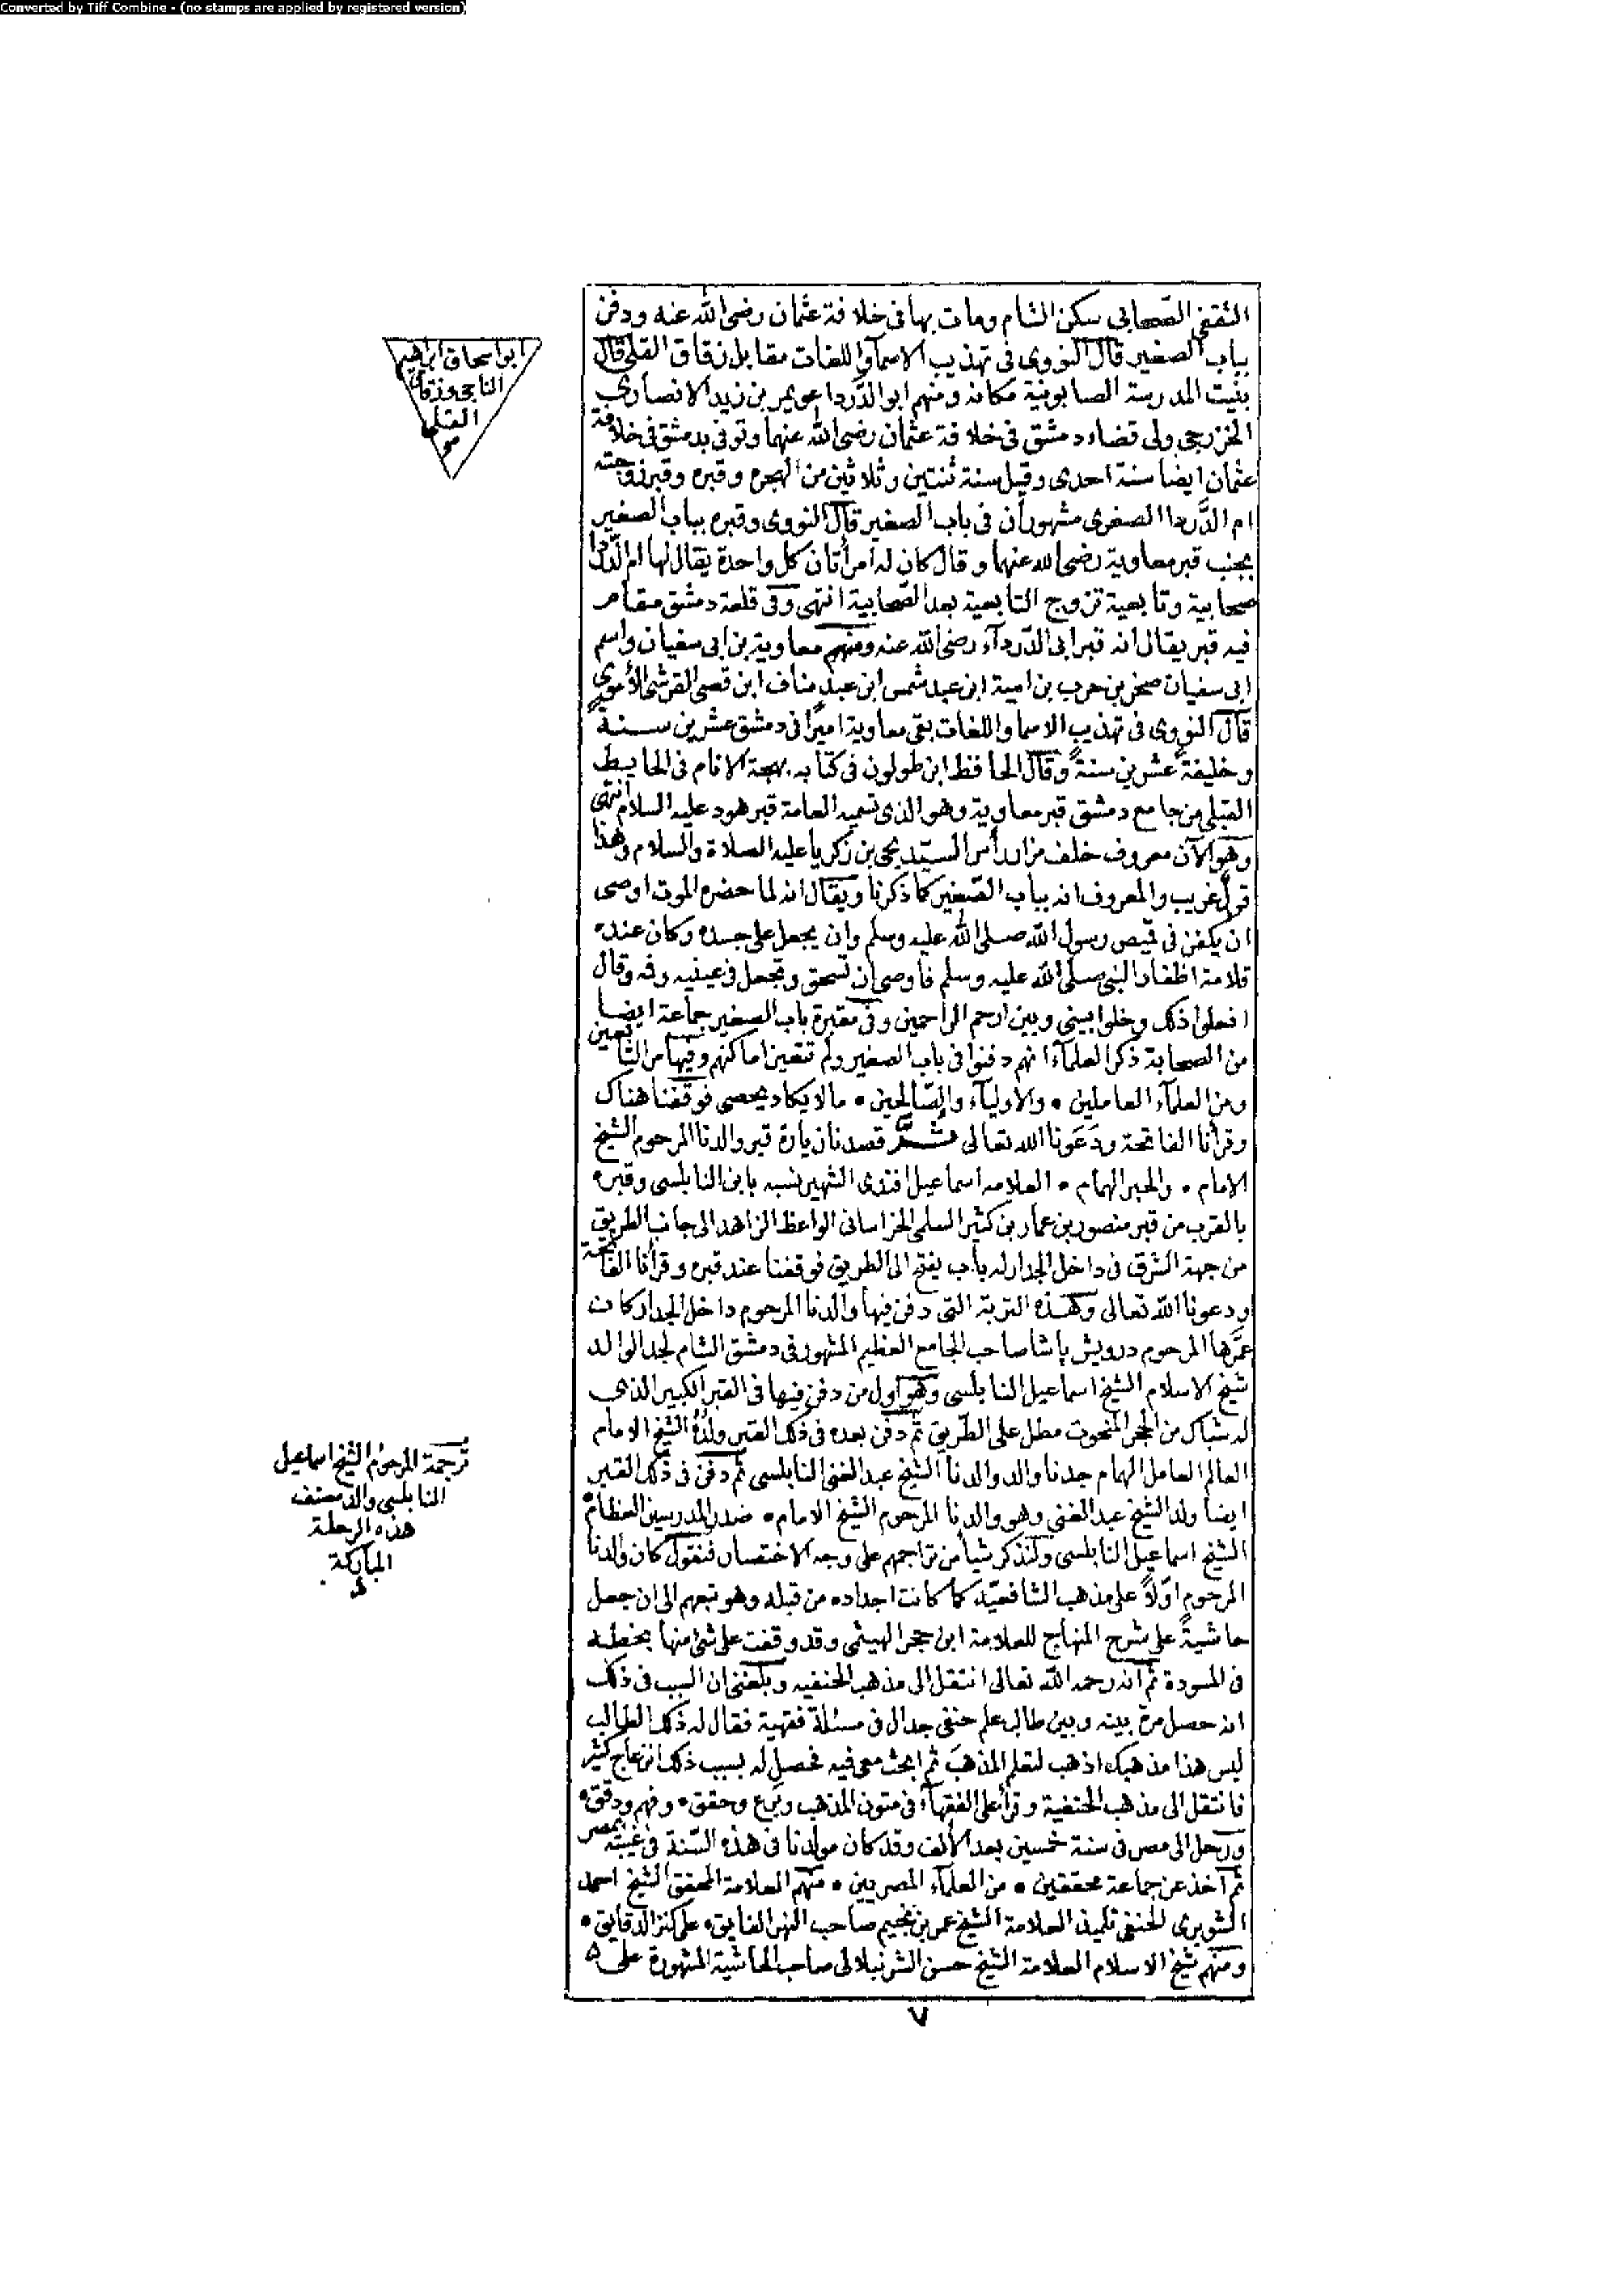 Converted by Tiff Combine - (no stamps are applied by registered version)
الثقفى الصحابى سكن الشام ومات بها فى خلافة عثمان رضى الله عنه ودفن
بباب الصغير قال النووى فى تهذيب الاسمآ واللغات مقابل زقاق القلى قال
بنيت المدرسة الصابونية مكانه ومنهم ابو الدردا عويمر بن زيد الانصارى
الخزرجى ولى قضاء دمشق فى خلافة عثمان رضى الله عنهما وتوفى بدمشق فى خلافة
عثمان ايضا سنة احدى وقيل سنة ثنتين وثلاثين من الهجرة وقبره وقبر زوجته
ام الدَّردا الصغرى مشهوران فى باب الصغير قال النووى وقبره بباب الصغير
بجنب قبر معاوية رضى الله عنهما وقال كان له امرأتان كل واحدة يقال لها ام الدردا
صحابية وتابعية تزوج التابعية بعد الصحابية انتهى وفى قلعة دمشق مقام
فيه قبر يقال انه قبر ابى الدّردآء رضى الله عنه ومنهم معاوية بن ابى سفيان واسم
ابى سفيان صخر بن حرب بن امية ابن عبد شمس ابن عبد مناف ابن قصى القرشى الأموى
قال النووى فى تهذيب الاسما واللغات بقى معاوية اميرًا فى دمشق عشرين سنة
وخليفةً عشرين سنةً وقال الحافظ ابن طولون فى كتابه بهجة الانام فى الحايط
القبلى من جامع دمشق قبر معاوية وهو الذى تسميه العامة قبر هود عليه السلام انتهى
وهو الآن معروف خلف مزار رأس السيّد يحيى بن زكريا عليه الصلاة والسلام وهذا
قول غريب والمعروف انه بباب الصّغير كما ذكرنا ويقال انه لما حضره الموت اوصى
ان يكفن فى قميص رسول الله صلى الله عليه وسلم وان يجعل على جسده وكان عنده
قلامة اظفار النبى صلى الله عليه وسلم فاوصى ان تسحق وتجعل فى عينيه وفه وقال
افعلوا ذلك وخلوا بينى وبين ارحم الراحمين وفى مقبرة باب الصغير جماعة ايضا
من الصحابة ذكر العلمآء انهم دفنوا فى باب الصغير ولم تتعين اماكنهم وفيها من التابعين
ومن العلمآء العاملين • والاوليآء والصّالحين • مالا يكاد يحصى فوقفنا هناك
وقرأنا الفاتحة ودَعَونا الله تعالى ثمَّ قصدنا زيارة قبر والدنا المرحوم الشيخ
الامام • والحبر الهمام • العلامه اسماعيل افندى الشهير نسبه بابن النابلسى وقبره
بالقرب من قبر منصور بن عمار بن كثير السلمى الخراسانى الواعظ الزاهد الى جانب الطريق
من جهة الشرق فى داخل الجدار له باب يفتح الى الطريق فوقفنا عند قبره وقرأنا الفاتحة
ودعونا الله تعالى وهذه التربة التى دفن فيها والدنا المرحوم داخل الجدار كانت
عمَّرها المرحوم درويش باشا صاحب الجامع العظيم المشهور فى دمشق الشام لجد الوالد
شيخ الاسلام الشيخ اسماعيل النابلسى وهو اول من دفن فيها فى القبر الكبير الذى
له شباك من الحجر المنحوت مطل على الطّريق ثم دفن بعده فى ذلك القبر ولدُهُ الشيخ الامام
العالم العامل الهمام جدنا والد والدنا الشيخ عبد الغنى النابلسى ثم دفن فى ذلك القبر
ايضا ولد الشيخ عبد الغنى وهو والدنا المرحوم الشيخ الامام • صدر المدرسين العظام
الشيخ اسماعيل النابلسى ولنذكر شيأ من تراجمهم على وجه الاختصار فنقول كان والدنا
المرحوم اوّلاً على مذهب الشافعيّه كما كانت اجداده من قبله وهو تبعهم الى ان جعل
حاشيةً على شرح المنهاج للعلامة ابن حجر الهيثمى وقد وقفت على شئ منها بخطه
فى المسودة ثم انه رحمه الله تعالى انتقل الى مذهب الحنفيه وبلغنى ان السبب فى ذلك
انه حصل مرة بينه وبين طالب علم حنفى جدال فى مسئلة فقهية فقال له ذلك الطالب
ليس هذا مذهبك اذهب لتعلم المذهب ثم ابحث معى فيه فحصل له بسبب ذلك انزعاج كثير
فانتقل الى مذهب الحنفية وقرأ على الفقهآء فى متون المذهب وبَرع وحقق • وفهم ودقق •
ورحل الى مصر فى سنة خمسين بعد الألف وقد كان مولدنا فى هذه السّنة فى غيبته بمصر
ثم اخذ عن جماعة محققين • من العلمآء المصريين • منهم العلامة المحقق الشيخ احمد
الشوبرى الحنفى تلميذ العلامة الشيخ عمر بن نجيم صاحب النهر الفايق • على كنز الدقايق •
ومنهم شيخ الاسلام العلامة الشيخ حسن الشرنبلالى صاحب الحاشية المشهورة على
٧
ابو اسحاق ابراهيم
الناجى وزقاق
القلى
ترجمة المرحوم الشيخ اسماعيل
النابلسى والد مصنف
هذه الرحلة
المباركة